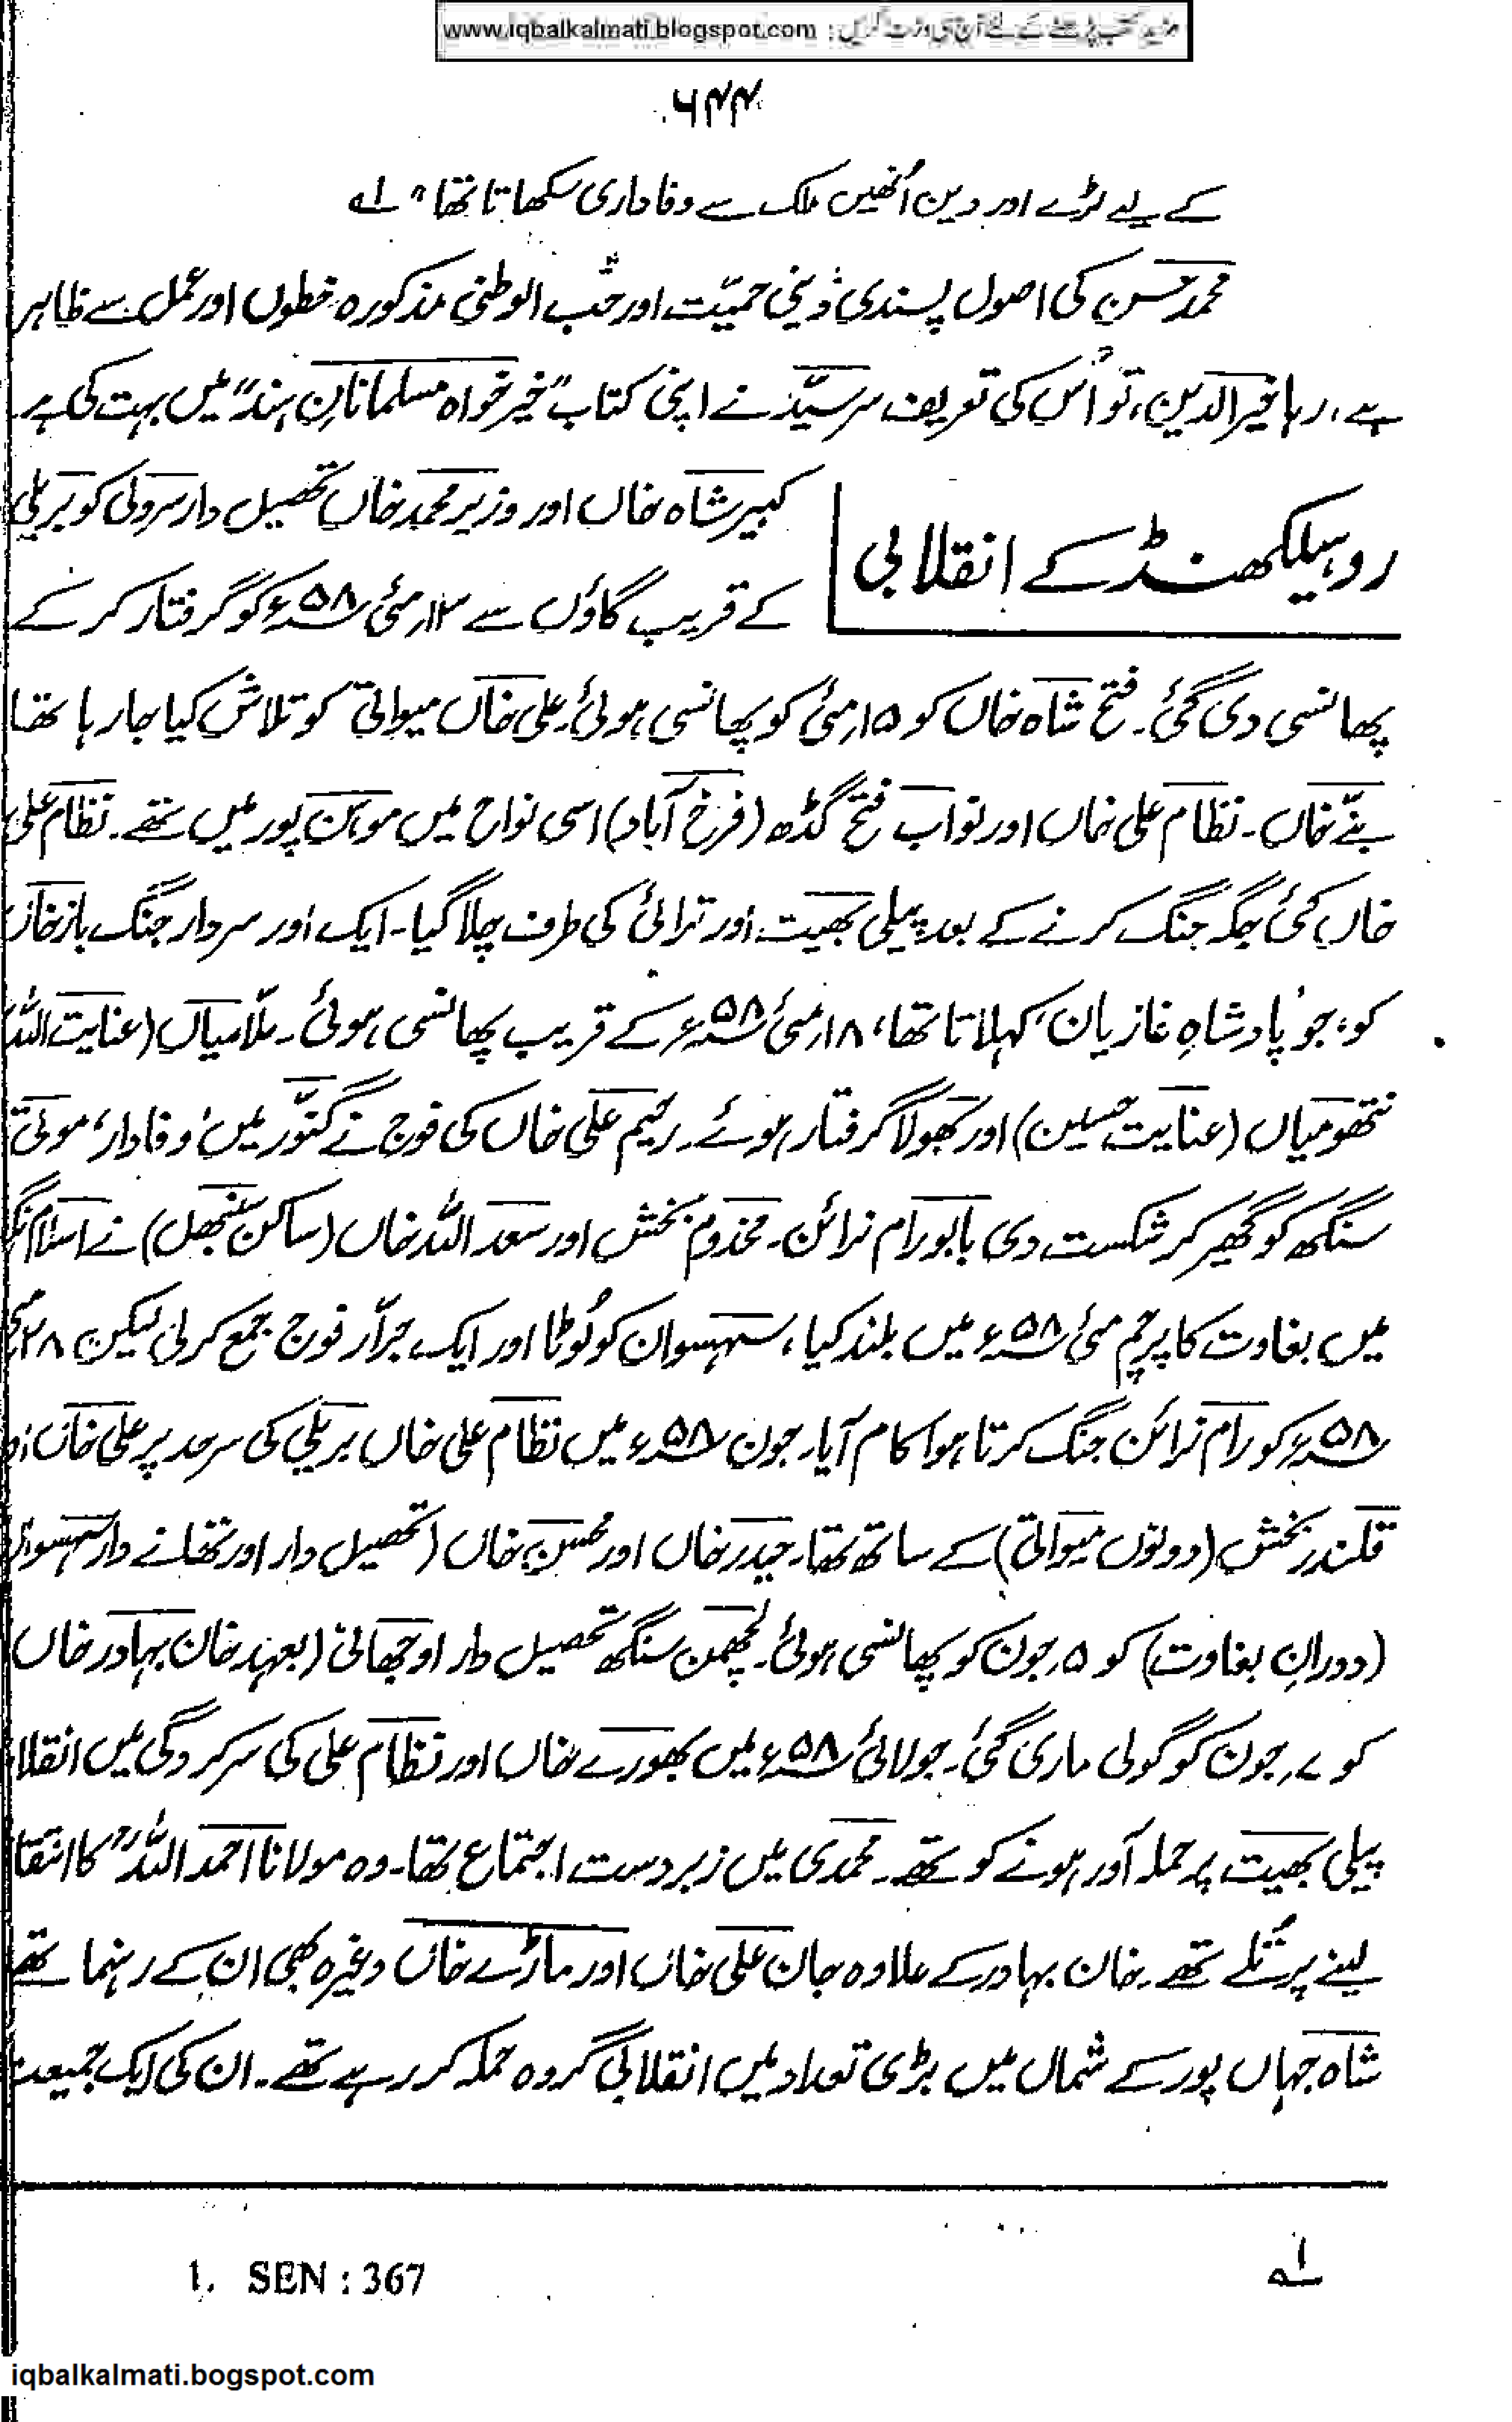 www.iqbalkalmati.blogspot.com : مزید کتب پڑھنے کے لئے آج ہی وزٹ کریں
۶۴۴
کے لیے لڑے اور دین اُنھیں ملک سے وفاداری سکھاتا تھا" لے
محمد حسن کی اصول پسندی دُینی حمیّت اور حُب الوطنی مذکورہ خطوں اور عمل سے ظاہر
ہے، رہا خیر الدین، تو اُس کی تعریف سرسیّد نے اپنی کتاب "خیر خواہ مسلمانانِ ہند" میں بہت کی ہے۔
روہیلکھنڈ کے انقلابی
کبیر شاہ خاں اور وزیر محمد خاں تحصیل دار سرولی کو بریلی
کے قریب گاؤں سے ۱۲؍مئی ۵۸ء کو گرفتار کر کے
پھانسی دی گئی۔ فتح شاہ خاں کو ۱۵؍مئی کو پھانسی ہوئی۔ علی خاں میواتی کو تلاش کیا جا رہا تھا
بنّے خاں۔ نظام علی خاں اور نواب فتح گڈھ (فرخ آباد) اسی نواح میں موہن پور میں تھے۔ نظام علی
خاں کئی جگہ جنگ کرنے کے بعد پیلی بھیت اور ترائی کی طرف چلا گیا۔ ایک اور سردار جنگ باز خاں
کو، جو 'پادشاہِ غازیان' کہلاتا تھا، ۱۸؍مئی ۵۸ء کے قریب پھانسی ہوئی۔ ملّا میاں (عنایت اللہ)
نتھو میاں (عنایت حسین) اور بھولا گرفتار ہوئے۔ رحیم علی خاں کی فوج نے گنّور میں 'وفادار' موتی
سنگھ کو گھیر کر شکست دی بابو رام نرائن۔ مخدوم بخش اور سعد اللہ خاں (ساکن سنبھل) نے اسلام نگر
میں بغاوت کا پرچم مئی ۵۸ء میں بلند کیا، سہسوان کو لُوٹا اور ایک جرّار فوج جمع کر لی لیکن ۲۸ مئی
۵۸ء کو رام نرائن جنگ کرتا ہوا کام آیا۔ جون ۵۸ء میں نظام علی خاں بریلی کی سرحد پر علی خاں او
قلندر بخش (دونوں میواتی) کے ساتھ تھا۔ حیدر خاں اور محسن خاں (تحصیل دار اور تھانے دار سہسوان
(دورانِ بغاوت) کو ۵؍جون کو پھانسی ہوئی۔ لچھمن سنگھ تحصیل دار اوجھانی (بعہد خان بہادر خاں
کو ۷؍جون کو گولی ماری گئی۔ جولائی ۵۸ء میں بھورے خاں اور نظام علی کی سرکردگی میں انقلا
پیلی بھیت پر حملہ آور ہونے کو تھے۔ محمدی میں زبردست اجتماع تھا۔ وہ مولانا احمد اللہؒ کا انتقا
لینے پر تُلے تھے۔ خان بہادر کے علاوہ جان علی خاں اور ماڑے خاں وغیرہ بھی ان کے رہنما تھے
شاہ جہاں پور کے شمال میں بڑی تعداد میں انقلابی گروہ حملہ کر رہے تھے۔ ان کی ایک جمیعت
لے
1. SEN : 367
iqbalkalmati.bogspot.com